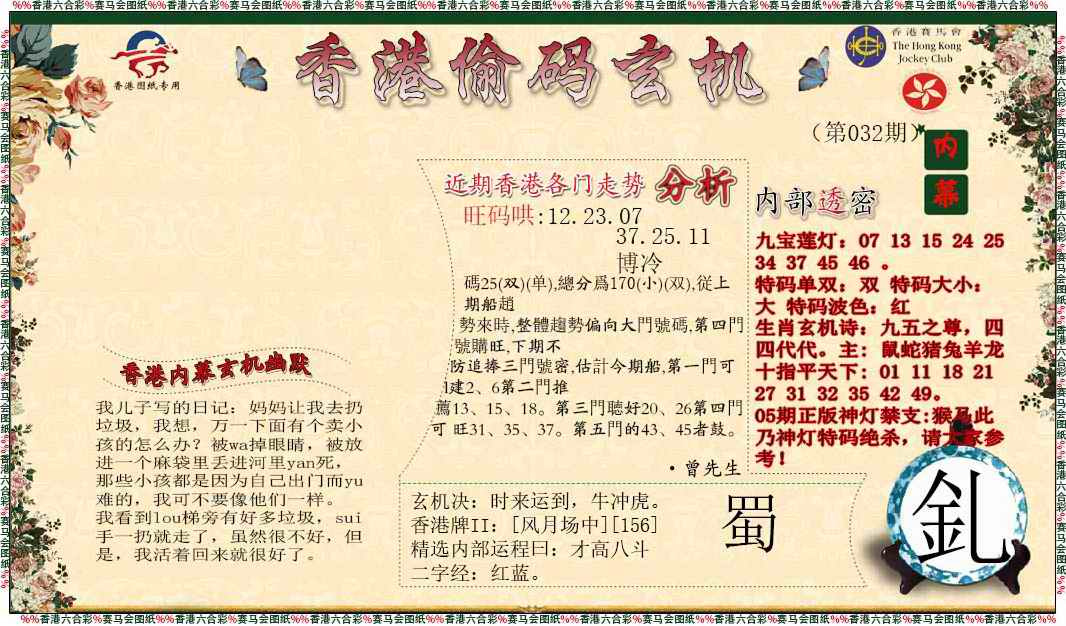 %%香港六合彩%赛马会图纸%%香港六合彩%赛马会图纸%%香港六合彩%赛马会图纸%%香港六合彩%赛马会图纸%%香港六合彩%赛马会图纸%%香港六合彩%赛马会图纸%%香港六合彩%赛马会图纸%%
香港图纸专用
香港偷码玄机
香港賽馬會
The Hong Kong
Jockey Club
（第032期）
内
幕
近期香港各门走势 分析
旺码哄:12.23.07
37.25.11
博冷
碼25(双)(单),總分爲170(小)(双),從上
期船趙
勢來時,整體趨勢偏向大門號碼,第四門
號購旺,下期不
防追捧三門號密,估計今期船,第一門可
建2、6第二門推
薦13、15、18。第三門聽好20、26第四門
可 旺31、35、37。第五門的43、45者鼓。
·曾先生
内部透密
九宝莲灯：07 13 15 24 25
34 37 45 46 。
特码单双：双 特码大小：
大 特码波色：红
生肖玄机诗：九五之尊，四
四代代。主：鼠蛇猪兔羊龙
十指平天下：01 11 18 21
27 31 32 35 42 49。
05期正版神灯禁支:猴马此
乃神灯特码绝杀，请大家参
考！
香港内幕玄机幽默
我儿子写的日记：妈妈让我去扔
垃圾，我想，万一下面有个卖小
孩的怎么办？被wa掉眼睛，被放
进一个麻袋里丢进河里yan死，
那些小孩都是因为自己出门而yu
难的，我可不要像他们一样。
我看到lou梯旁有好多垃圾，sui
手一扔就走了，虽然很不好，但
是，我活着回来就很好了。
玄机决：时来运到，牛冲虎。
香港牌II：[风月场中][156]
精选内部运程曰：才高八斗
二字经：红蓝。
蜀
釓
%%香港六合彩%赛马会图纸%%香港六合彩%赛马会图纸%%香港六合彩%赛马会图纸%%香港六合彩%赛马会图纸%%香港六合彩%赛马会图纸%%香港六合彩%赛马会图纸%%香港六合彩%赛马会图纸%%